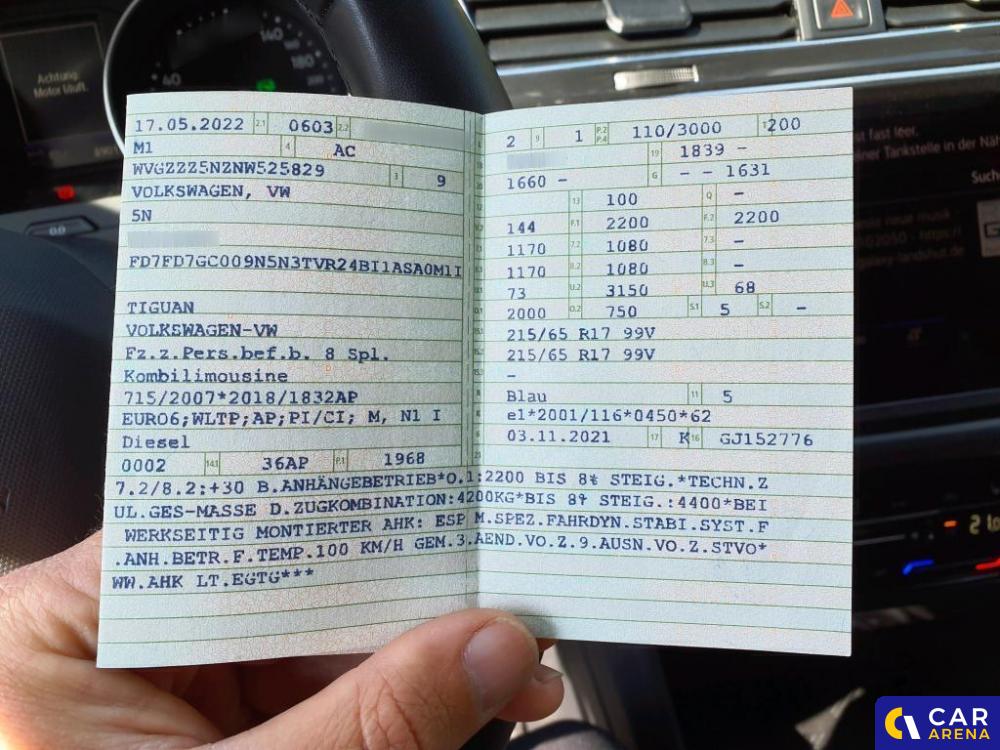 Achtung.
Motor läuft.
40
140
180
17.05.2022 2.1 0603 2.2
M1 4 AC
WVGZZZ5NZNW525829 3 9
VOLKSWAGEN, VW
5N
FD7FD7GC009N5N3TVR24BI1ASA0M1I
TIGUAN
VOLKSWAGEN-VW
Fz.z.Pers.bef.b. 8 Spl.
Kombilimousine
715/2007*2018/1832AP
EURO6;WLTP;AP;PI/CI; M, N1 I
Diesel
0002 14.1 36AP P.1 1968
2 9 1 P.2 P.4 110/3000 T 200
19 1839 -
1660 - G - - 1631
13 100 Q -
144 F.1 2200 F.2 2200
1170 7.2 1080 7.3 -
1170 8.2 1080 8.3 -
73 U.2 3150 U.3 68
2000 O.2 750 S.1 5 S.2 -
215/65 R17 99V
215/65 R17 99V
-
Blau 11 5
e1*2001/116*0450*62
03.11.2021 17 K 16 GJ152776
7.2/8.2:+30 B.ANHÄNGEBETRIEB*O.1:2200 BIS 8% STEIG.*TECHN.Z
UL.GES-MASSE D.ZUGKOMBINATION:4200KG*BIS 8% STEIG.:4400*BEI
WERKSEITIG MONTIERTER AHK: ESP M.SPEZ.FAHRDYN.STABI.SYST.F
.ANH.BETR.F.TEMP.100 KM/H GEM.3.AEND.VO.Z.9.AUSN.VO.Z.STVO*
WW.AHK LT.EGTG***
st fast leer.
einer Tankstelle in der Näh
Such
CAR
ARENA